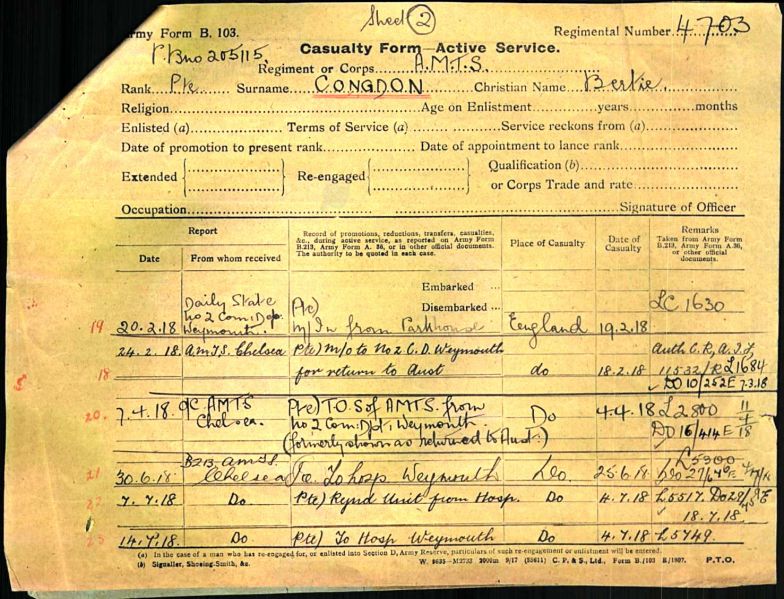 Sheet 2
Army Form B. 103.
Regimental Number 4703
P.Bno 205115.
Casualty Form—Active Service.
Regiment or Corps A.M.T.S.
Rank Pte Surname CONGDON Christian Name Bertie.
Religion Age on Enlistment years months
Enlisted (a) Terms of Service (a) Service reckons from (a)
Date of promotion to present rank Date of appointment to lance rank
Extended Re-engaged Qualification (b)
or Corps Trade and rate
Occupation Signature of Officer
Report
Date From whom received
Record of promotions, reductions, transfers, casualties, &c., during active service, as reported on Army Form B.213, Army Form A. 36, or in other official documents. The authority to be quoted in each case.
Place of Casualty
Date of Casualty
Remarks
Taken from Army Form B.213, Army Form A.36, or other official documents.
Embarked ...
Disembarked ...
19 20.2.18 Daily State No 2 Com. Dep. Weymouth. Pte) M/In from Parkhouse England 19.2.18 LC 1630
18 24.2.18. A.M.T.S. Chelsea Pte) M/o to No 2 C.D. Weymouth for return to Aust do 18.2.18 Auth C.R, A.I.F, 11532/R L1684 DO 10/252E 7.3.18
20. 7.4.18 O/C AMTS Chelsea. Pte) T.O.S of AMTS. from No 2 Com: Dpt, Weymouth. (formerly shown as returned to Aust.) Do 4.4.18 L2800 DO 16/414E 11/4/18
21 30.6.18. B213 AMTS. Chelsea To hosp Weymouth Do. 25.6.18 L5300
22 7.7.18 Do Pte) Rejnd Unit from Hosp. Do 4.7.18 L5517. 18.7.18.
23 14.7.18. Do Pte) To Hosp Weymouth Do 4.7.18 L5749.
(a) In the case of a man who has re-engaged for, or enlisted into Section D, Army Reserve, particulars of such re-engagement or enlistment will be entered.
(b) Signaller, Shoeing-Smith, &c.
W. 9635—M2733 2000m 9/17 (55611) C. P. & S., Ltd., Form B./103 E/1907. P.T.O.